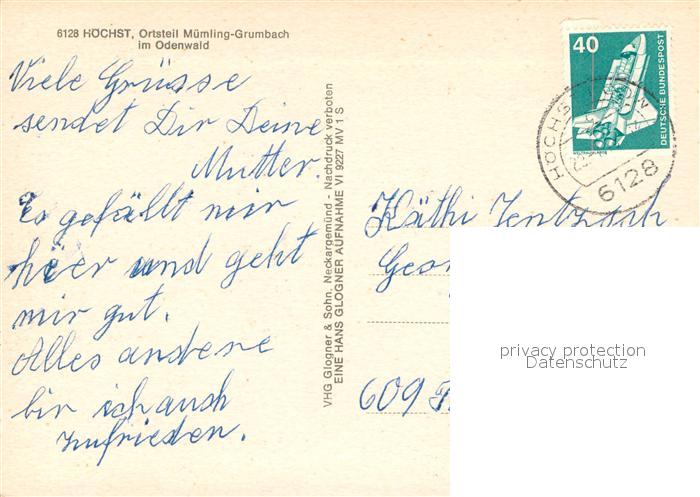 6128 HÖCHST, Ortsteil Mümling-Grumbach
im Odenwald
Viele Grüsse
sendet Dir Deine
Mutter.
Es gefällt mir
hier und geht
mir gut.
Alles andene
bin ich auch
zufrieden.
VHG Glogner & Sohn. Neckargemünd - Nachdruck verboten
EINE HANS GLOGNER AUFNAHME VI 9227 MV 1 S
40
DEUTSCHE BUNDESPOST
6128
Käthi Jentzsch
609
privacy protection
Datenschutz